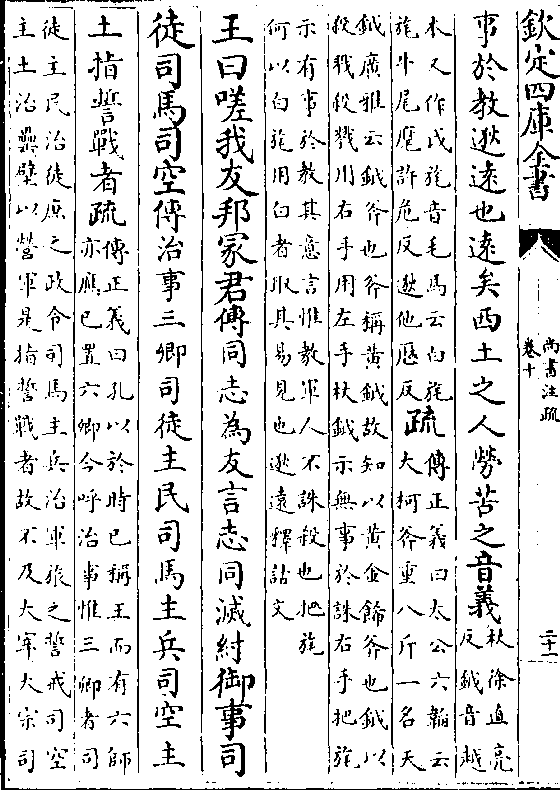 欽定四庫全書
尚書注疏
卷十
二十一
事於教逖逺也逺矣西土之人勞苦之音義
杖徐直亮
反鉞音越
本又作戉旄音毛馬云白旄
旄牛尾麾許危反逖他厯反
疏
傳正義曰太公六韜云
大柯斧重八斤一名天
鉞廣雅云鉞斧也斧稱黄鉞故知以黄金飾斧也鉞以
殺戮殺戮用右手用左手杖鉞示無事於誅右手把旄
示有事於教其意言惟教軍人不誅殺也把旄
何以白旄用白者取其易見也逖逺釋詁文
王曰嗟我友邦冡君傳同志為友言志同滅紂御事司
徒司馬司空傳治事三卿司徒主民司馬主兵司空主
土指誓戰者疏
傳正義曰孔以於時已稱王而有六師
亦應已置六卿今呼治事惟三卿者司
徒主民治徒庶之政令司馬主兵治軍旅之誓戒司空
主土治壘壁以營軍是指誓戰者故不及太宰太宗司